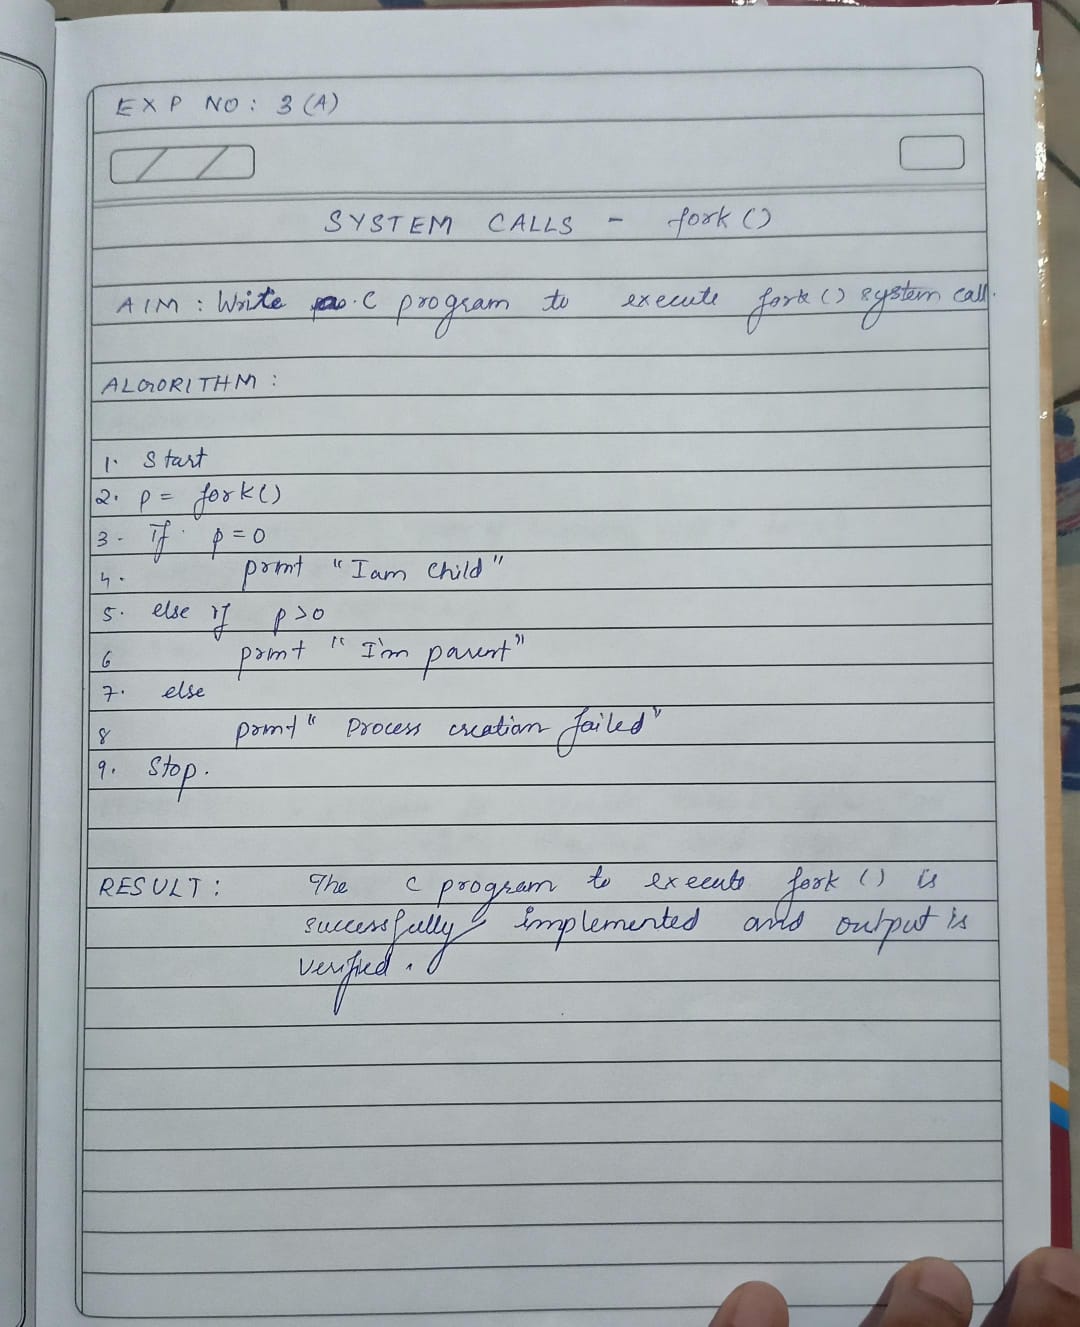 EXP NO: 3 (A)
SYSTEM CALLS - fork ()
AIM : Write C program to execute fork () system call.
ALGORITHM :
1. Start
2. p = fork()
3. If p = 0
4. print "I am child"
5. else if p > 0
6 print "I'm parent"
7. else
8 print "Process creation failed"
9. Stop.
RESULT : The C program to execute fork () is
successfully implemented and output is
verified.